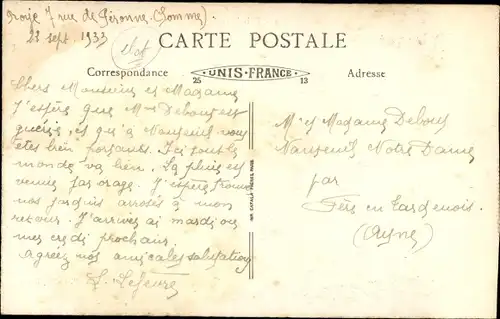 7 rue de Péronne (Somme)
23 sept. 1933
CARTE POSTALE
Correspondance
UNIS-FRANCE
Adresse
25
13
Chers Monsieur et Madame
J'espère que Mme Debouf est
guérie, et qu'à Nanteuil vous
êtes bien portants. Ici tout le
monde va bien. La pluie est
venue par orage. J'espère trouver
nos jardins arrosés à mon
retour. J'arriverai mardi ou
mercredi prochain
Agréez nos amicales salutations
L. Lefèvre
Mr et Madame Debouf
Nanteuil Notre Dame
par
Fère en Tardenois
(Aysne)